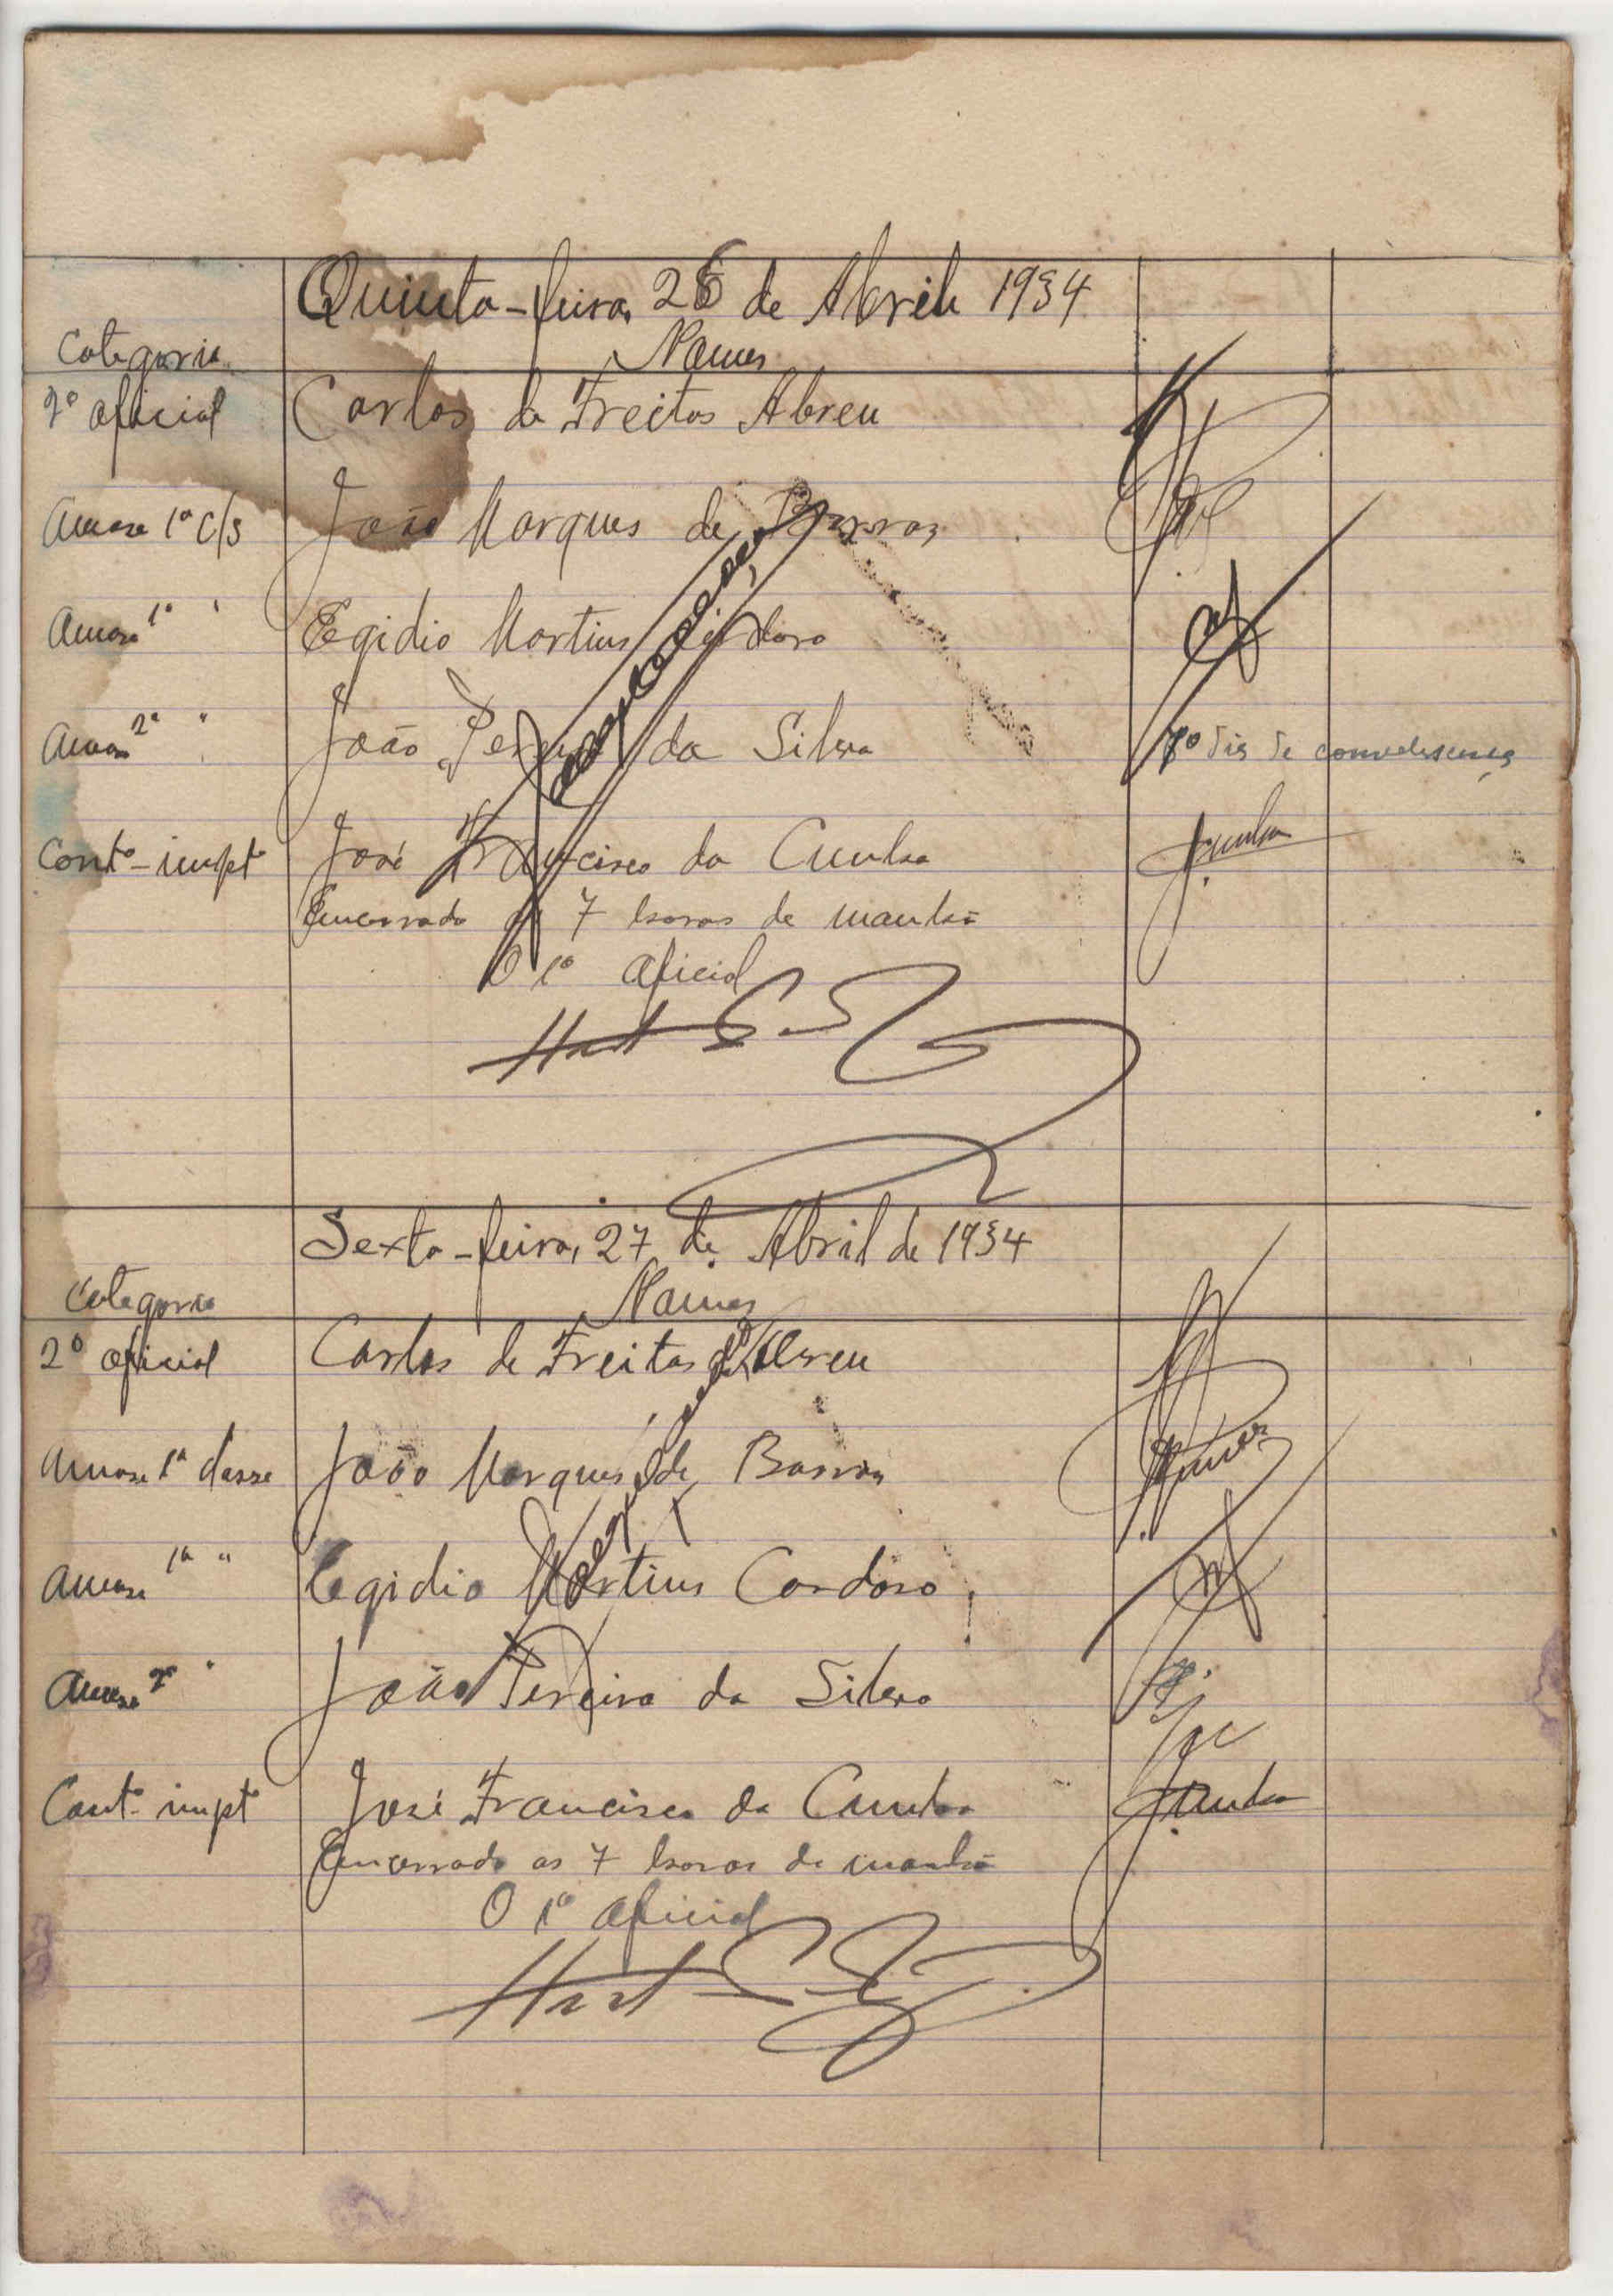 Quinta-feira, 26 de Abril 1934
Categoria Nomes
2º oficial Carlos de Freitas Abreu
1ª c/s João Marques de Barros
1ª " Egidio Martins Cardoso
2ª " João Pereira da Silva 7º dia de convalescença
Contº-impt José Francisco da Cunha JCunha
Encerrado as 7 horas da manhã
O 1º Oficial
Sexta-feira, 27 de Abril de 1934
Categoria Nomes
2º oficial Carlos de Freitas Abreu
1ª classe João Marques de Barros
1ª " Egidio Martins Cardoso
2ª " João Pereira da Silva
Contº-impt José Francisco da Cunha JCunha
Encerrado as 7 horas da manhã
O 1º Oficial